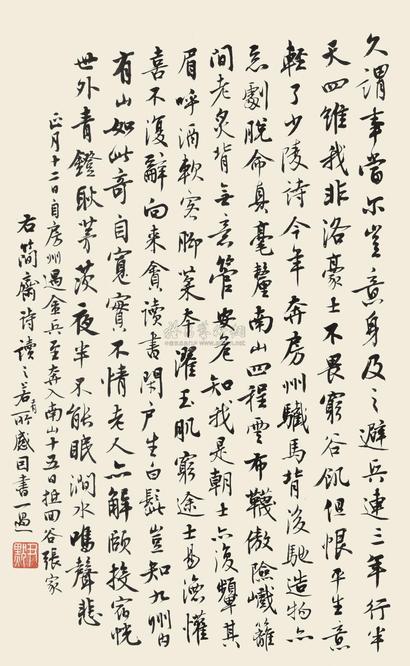 久謂事當尔豈意身及之避兵連三年行半
天四維我非洛豪士不畏窮谷飢但恨平生意
輕了少陵詩今年奔房州驖馬背後馳造物亦
惡劇脫命真毫釐南山四程雲布韈傲險巇籬
間老炙背無意管安危知我是朝士亦復顰其
眉呼酒軟客脚菜本濯玉肌窮途士易德懽
喜不復辭向來貪讀書閉户生白髭豈知九州内
有山如此奇自寬實不情老人亦解頤投宿恍
世外青鐙耿茅茨夜半不能眠澗水鳴聲悲
正月十二日自房州遇金兵至奔入南山十五日抵回谷張家
右簡齋詩讀之若有所感因書一過
尹默